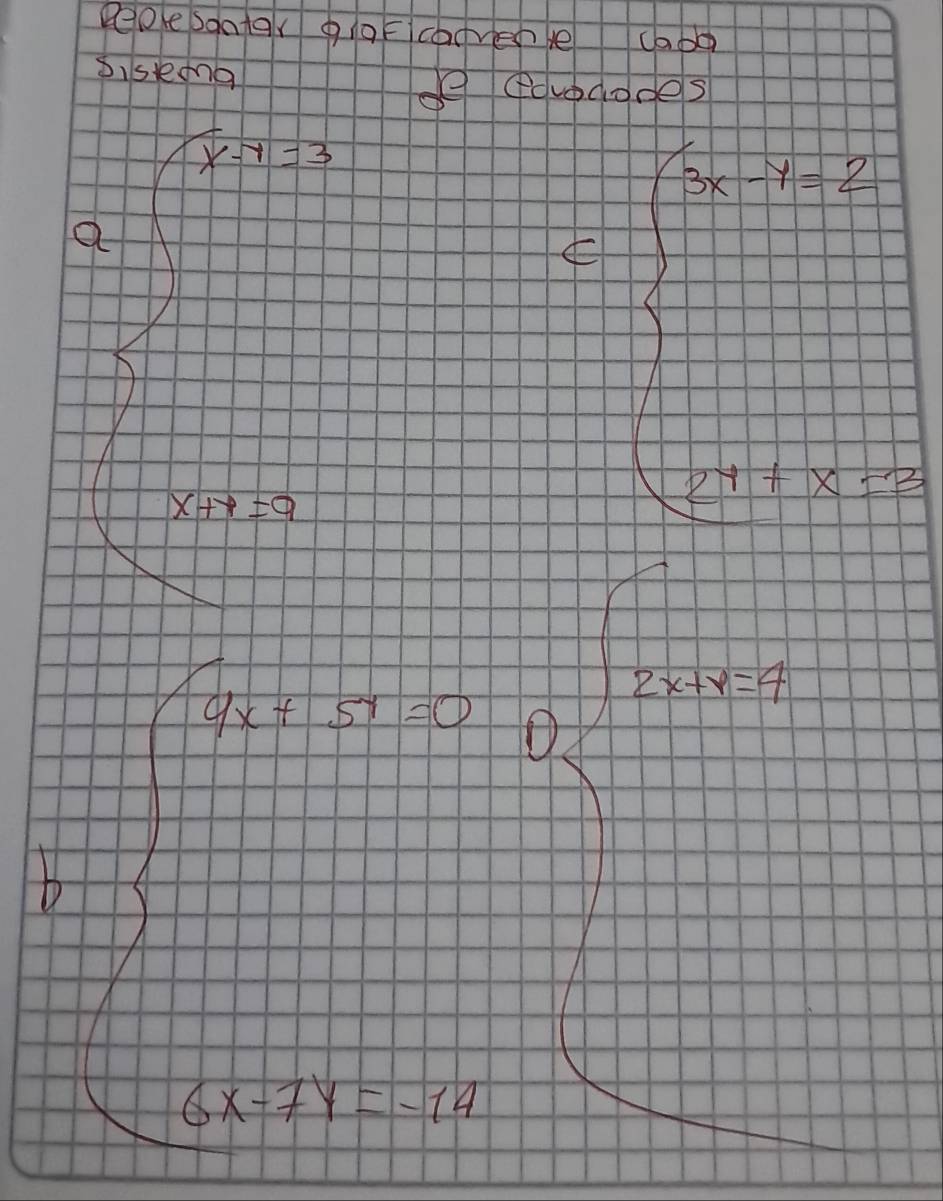 Repesentar graficamente cada
sistema de Ecuaciones
a
x-y=3
x+y=9
c
3x-y=2
2y+x=3
b
4x+5y=0
6x-7y=-14
D
2x+y=4